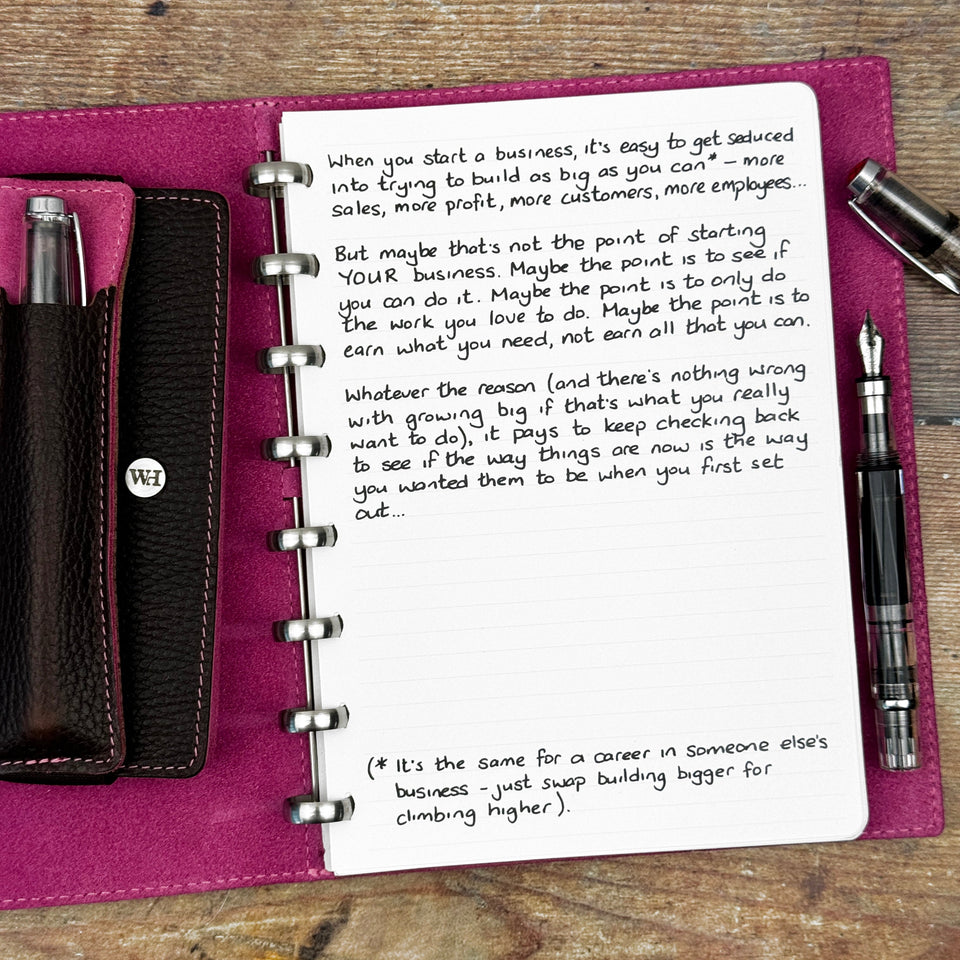 When you start a business, it's easy to get seduced
into trying to build as big as you can* – more
sales, more profit, more customers, more employees...
But maybe that's not the point of starting
YOUR business. Maybe the point is to see if
you can do it. Maybe the point is to only do
the work you love to do. Maybe the point is to
earn what you need, not earn all that you can.
Whatever the reason (and there's nothing wrong
with growing big if that's what you really
want to do), it pays to keep checking back
to see if the way things are now is the way
you wanted them to be when you first set
out...
(* It's the same for a career in someone else's
business - just swap building bigger for
climbing higher).
WH